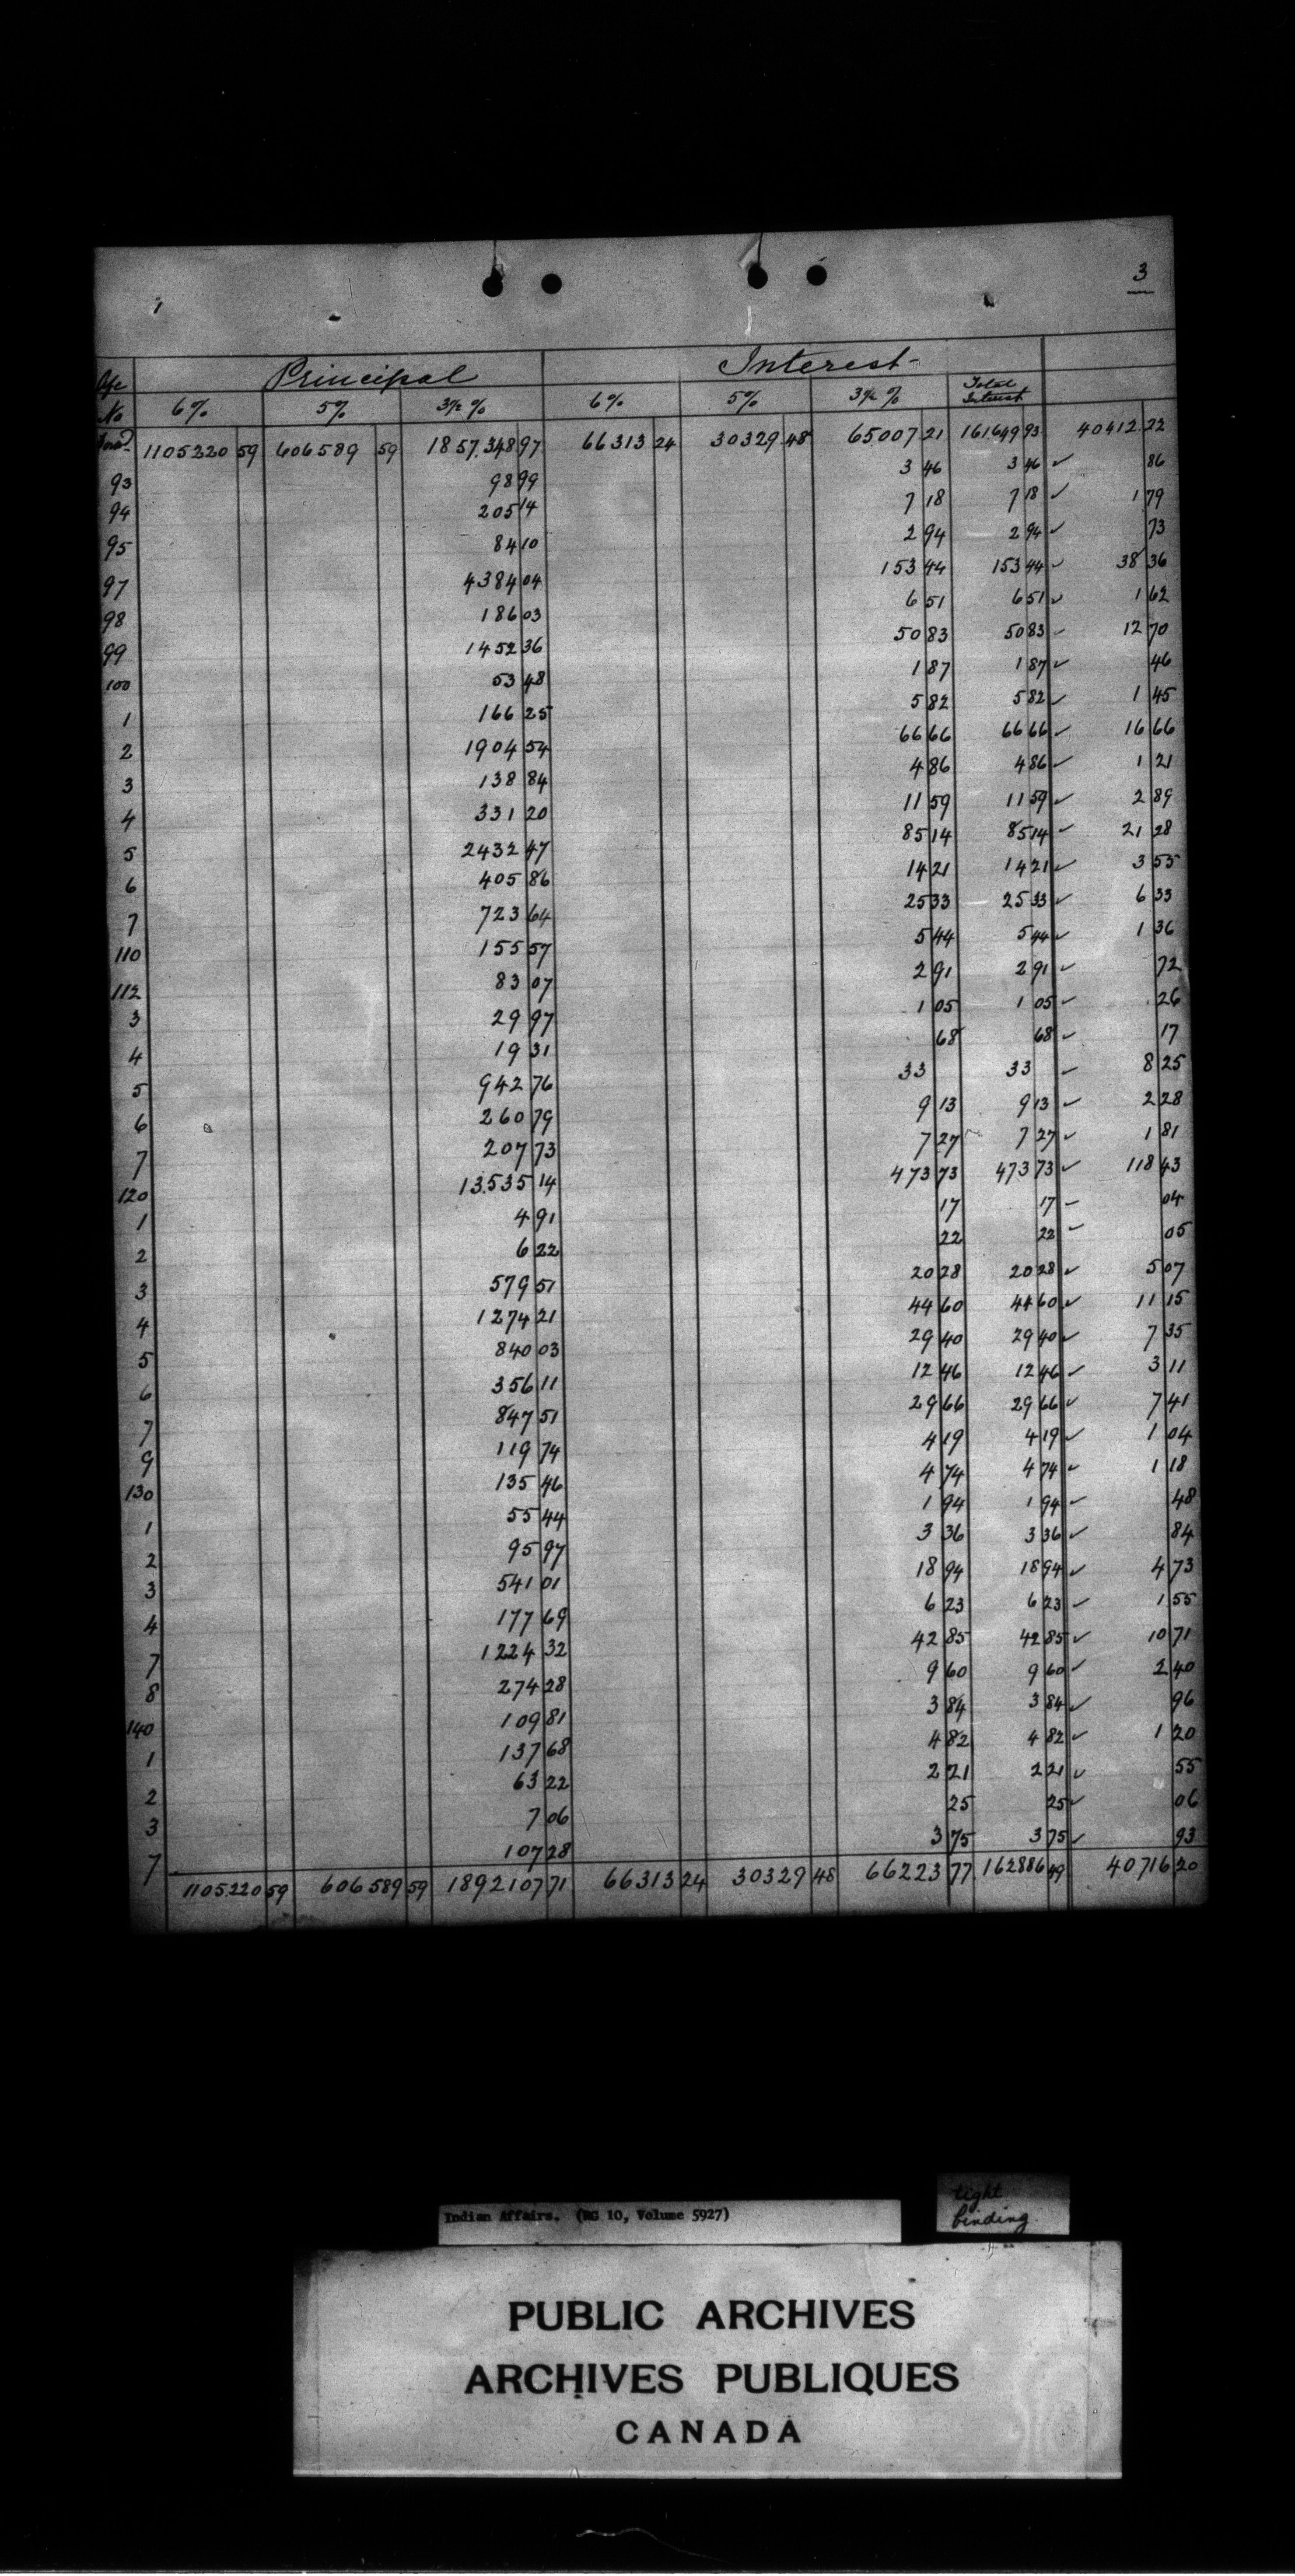 3
Principal Interest
No 6% 5% 3½ % 6% 5% 3½ % Total Interest
1105220 59 606589 59 1857,348 97 66313 24 30329 48 65007 21 161,649 93 40412 22
93 98 99 3 46 3 46 ✓ 86
94 205 14 7 18 7 18 ✓ 1 79
95 84 10 2 94 2 94 ✓ 73
97 4384 04 153 44 153 44 ✓ 38 36
98 186 03 6 51 6 51 ✓ 1 62
99 1452 36 50 83 50 83 ✓ 12 70
100 53 48 1 87 1 87 ✓ 46
1 166 25 5 82 5 82 ✓ 1 45
2 1904 54 66 66 66 66 ✓ 16 66
3 138 84 4 86 4 86 ✓ 1 21
4 331 20 11 59 11 59 ✓ 2 89
5 2432 47 85 14 85 14 ✓ 21 28
6 405 86 14 21 14 21 ✓ 3 55
7 723 64 25 33 25 33 ✓ 6 33
110 155 57 5 44 5 44 ✓ 1 36
112 83 07 2 91 2 91 ✓ 72
3 29 97 1 05 1 05 ✓ 26
4 19 31 68 68 ✓ 17
5 942 76 33 33 ✓ 8 25
6 260 79 9 13 9 13 ✓ 2 28
7 207 73 7 27 7 27 ✓ 1 81
120 13,535 14 473 73 473 73 ✓ 118 43
1 4 91 17 17 ✓ 04
2 6 22 22 22 ✓ 05
3 579 51 20 28 20 28 ✓ 5 07
4 1274 21 44 60 44 60 ✓ 11 15
5 840 03 29 40 29 40 ✓ 7 35
6 356 11 12 46 12 46 ✓ 3 11
7 847 51 29 66 29 66 ✓ 7 41
9 119 74 4 19 4 19 ✓ 1 04
130 135 46 4 74 4 74 ✓ 1 18
1 55 44 1 94 1 94 ✓ 48
2 95 97 3 36 3 36 ✓ 84
3 541 01 18 94 18 94 ✓ 4 73
4 177 69 6 23 6 23 ✓ 1 55
7 1224 32 42 85 42 85 ✓ 10 71
8 274 28 9 60 9 60 ✓ 2 40
140 109 81 3 84 3 84 ✓ 96
1 137 68 4 82 4 82 ✓ 1 20
2 63 22 2 21 2 21 ✓ 55
3 7 06 25 25 ✓ 06
7 107 28 3 75 3 75 ✓ 93
1105,220 59 606589 59 1892107 71 66313 24 30329 48 66223 77 162886 49 40716 20
Indian Affairs. (RG 10, Volume 5927)
tight
binding
PUBLIC ARCHIVES
ARCHIVES PUBLIQUES
CANADA